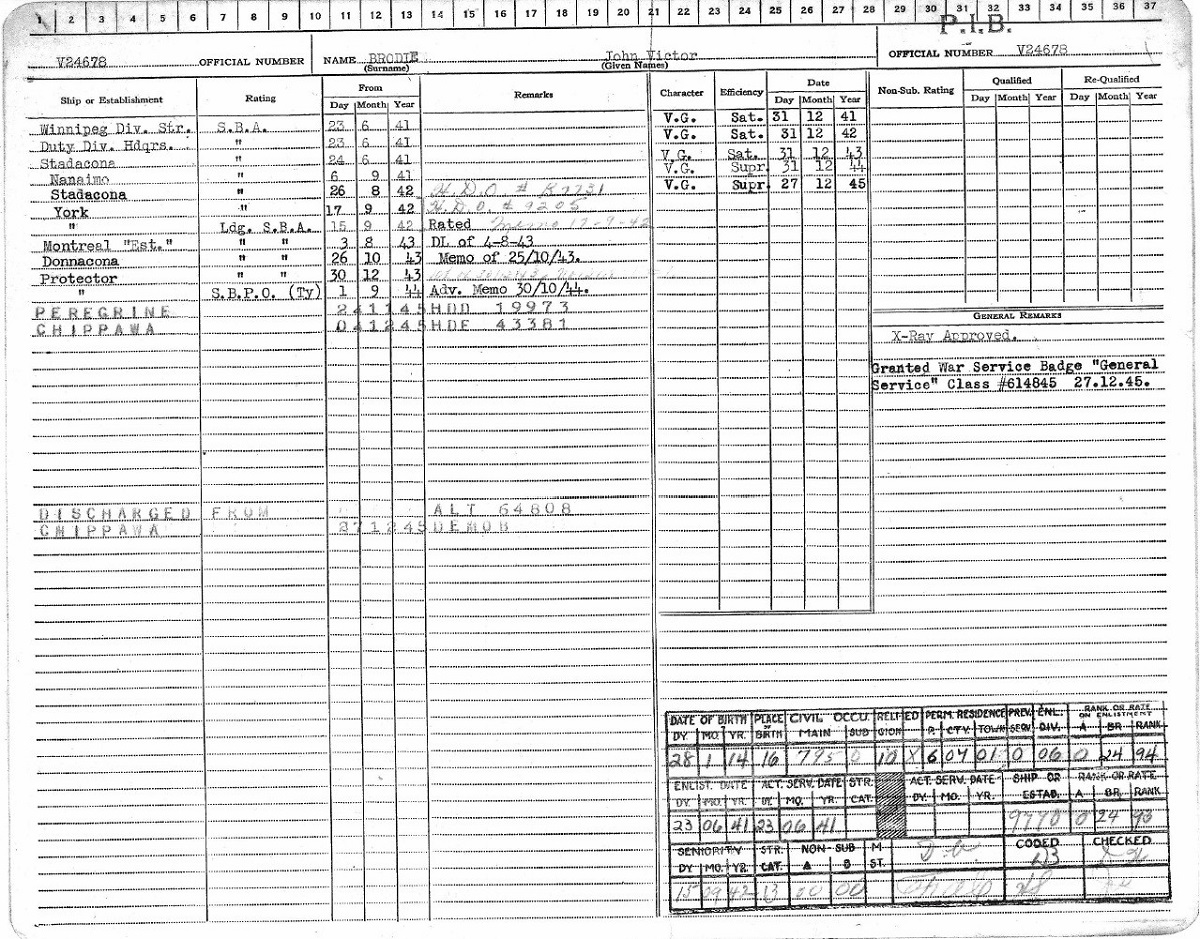 1 2 3 4 5 6 7 8 9 10 11 12 13 14 15 16 17 18 19 20 21 22 23 24 25 26 27 28 29 30 31 32 33 34 35 36 37
P.I.B.
V24678 OFFICIAL NUMBER NAME BRODIE John Victor OFFICIAL NUMBER V24678
(Surname) (Given Names)
Ship or Establishment Rating From Remarks Character Efficiency Date Non-Sub. Rating Qualified Re-Qualified
Day Month Year Day Month Year Day Month Year Day Month Year
Winnipeg Div. Str. S.B.A. 23 6 41 V.G. Sat. 31 12 41
Duty Div. Hdqrs. " 23 6 41 V.G. Sat. 31 12 42
Stadacona " 24 6 41 V.G. Sat. 31 12 43
Nanaimo " 6 9 41 V.G. Supr. 31 12 44
Stadacona " 26 8 42 H.D.O. # V.G. Supr. 27 12 45
York " 17 9 42 H.D.O. # 9205
" Ldg. S.B.A. 15 9 42 Rated Memo 17-9-42
Montreal "Est." " " 3 8 43 DL of 4-8-43
Donnacona " " 26 10 43 Memo of 25/10/43.
Protector " " 30 12 43
" S.B.P.O. (Ty) 1 9 44 Adv. Memo 30/10/44.
PEREGRINE 241145 HDD 19973
CHIPPAWA 041245 HDE 43381
GENERAL REMARKS
X-Ray Approved.
Granted War Service Badge "General
Service" Class #614845 27.12.45.
DISCHARGED FROM ALT 64808
CHIPPAWA 271245 DEMOB
DATE OF BIRTH PLACE CIVIL OCCU. RELI ED PERM. RESIDENCE PREV. ENL. RANK OR RATE ON ENLISTMENT
DY. MO. YR. BIRTH MAIN SUB GION P. CTY. TOWN SERV. DIV. A BR. RANK
28 1 14 16 795 0 10 X 6 07 01 0 06 0 24 94
ENLIST. DATE ACT. SERV. DATE STR. ACT. SERV. DATE SHIP OR RANK OR RATE
DY. MO. YR. DY. MO. YR. CAT. DY. MO. YR. ESTAB. A BR. RANK
23 06 41 23 06 41 9770 0 24 93
SENIORITY STR. NON-SUB M CODED CHECKED
DY. MO. YR. CAT. A B ST.
15 09 42 13 00 00